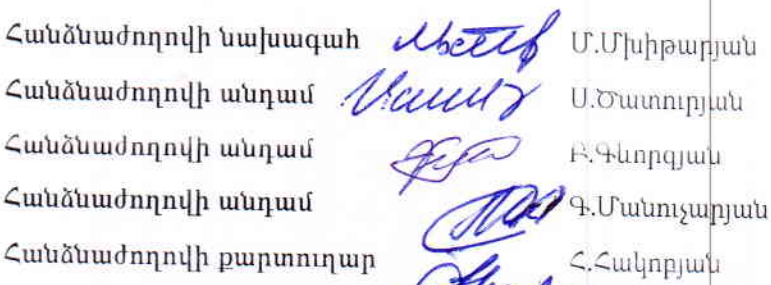 Հանձնաժողովի նախագահ Մ.Մխիթարյան
Հանձնաժողովի անդամ Ս.Ծատուրյան
Հանձնաժողովի անդամ Բ.Գևորգյան
Հանձնաժողովի անդամ Գ.Մանուչարյան
Հանձնաժողովի քարտուղար Հ.Հակոբյան